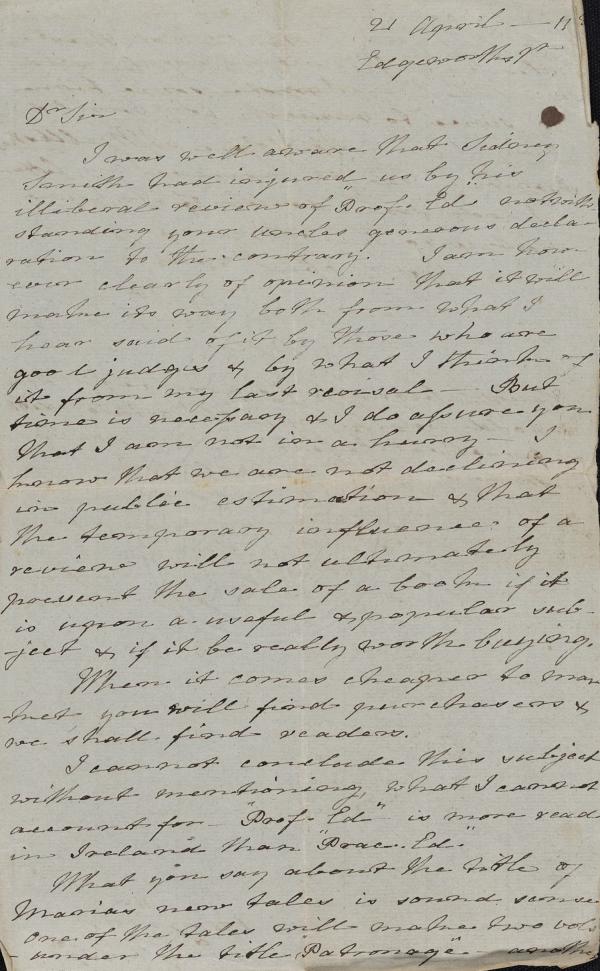 21 April — 11
Edgeworths Tn
Dr Sir
I was well aware that Sidney
Smith had injured us by his
illiberal review of "Prof. Ed." notwith
standing your uncles generous decla-
ration to the contrary. I am how
ever clearly of opinion that it will
make its way both from what I
hear said of it by those who are
good judges & by what I think of
it from my last revisal — But
time is necessary & I do assure you
that I am not in a hurry — I
know that we are not declining
in public estimation & that
the temporary influence of a
review will not ultimately
prevent the sale of a book if it
is upon a useful & popular sub-
-ject & if it be really worth buying.
When it comes cheaper to mar
ket you will find purchasers &
we shall find readers.
I cannot conclude this subject
without mentioning, what I cannot
account for — "Prof. Ed" is more read
in Ireland than "Prac. Ed."
What you say about the title of
Marias new tales is sound sense
one of the tales will make two vols
- under the title "Patronage" — another